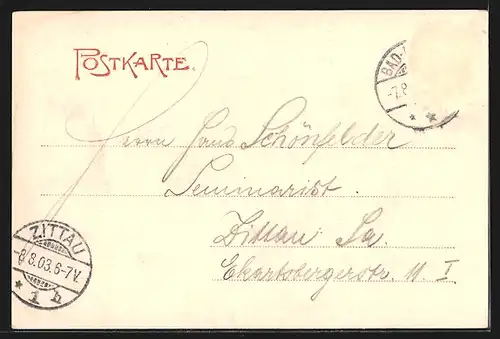 POSTKARTE.
BAD-
-7.8
Herrn Hans Schönfelder
Seminarist.
Zittau Sa.
Eckartsbergerstr. 11 I
ZITTAU
-8.8.03.6-7V.
* 1 b